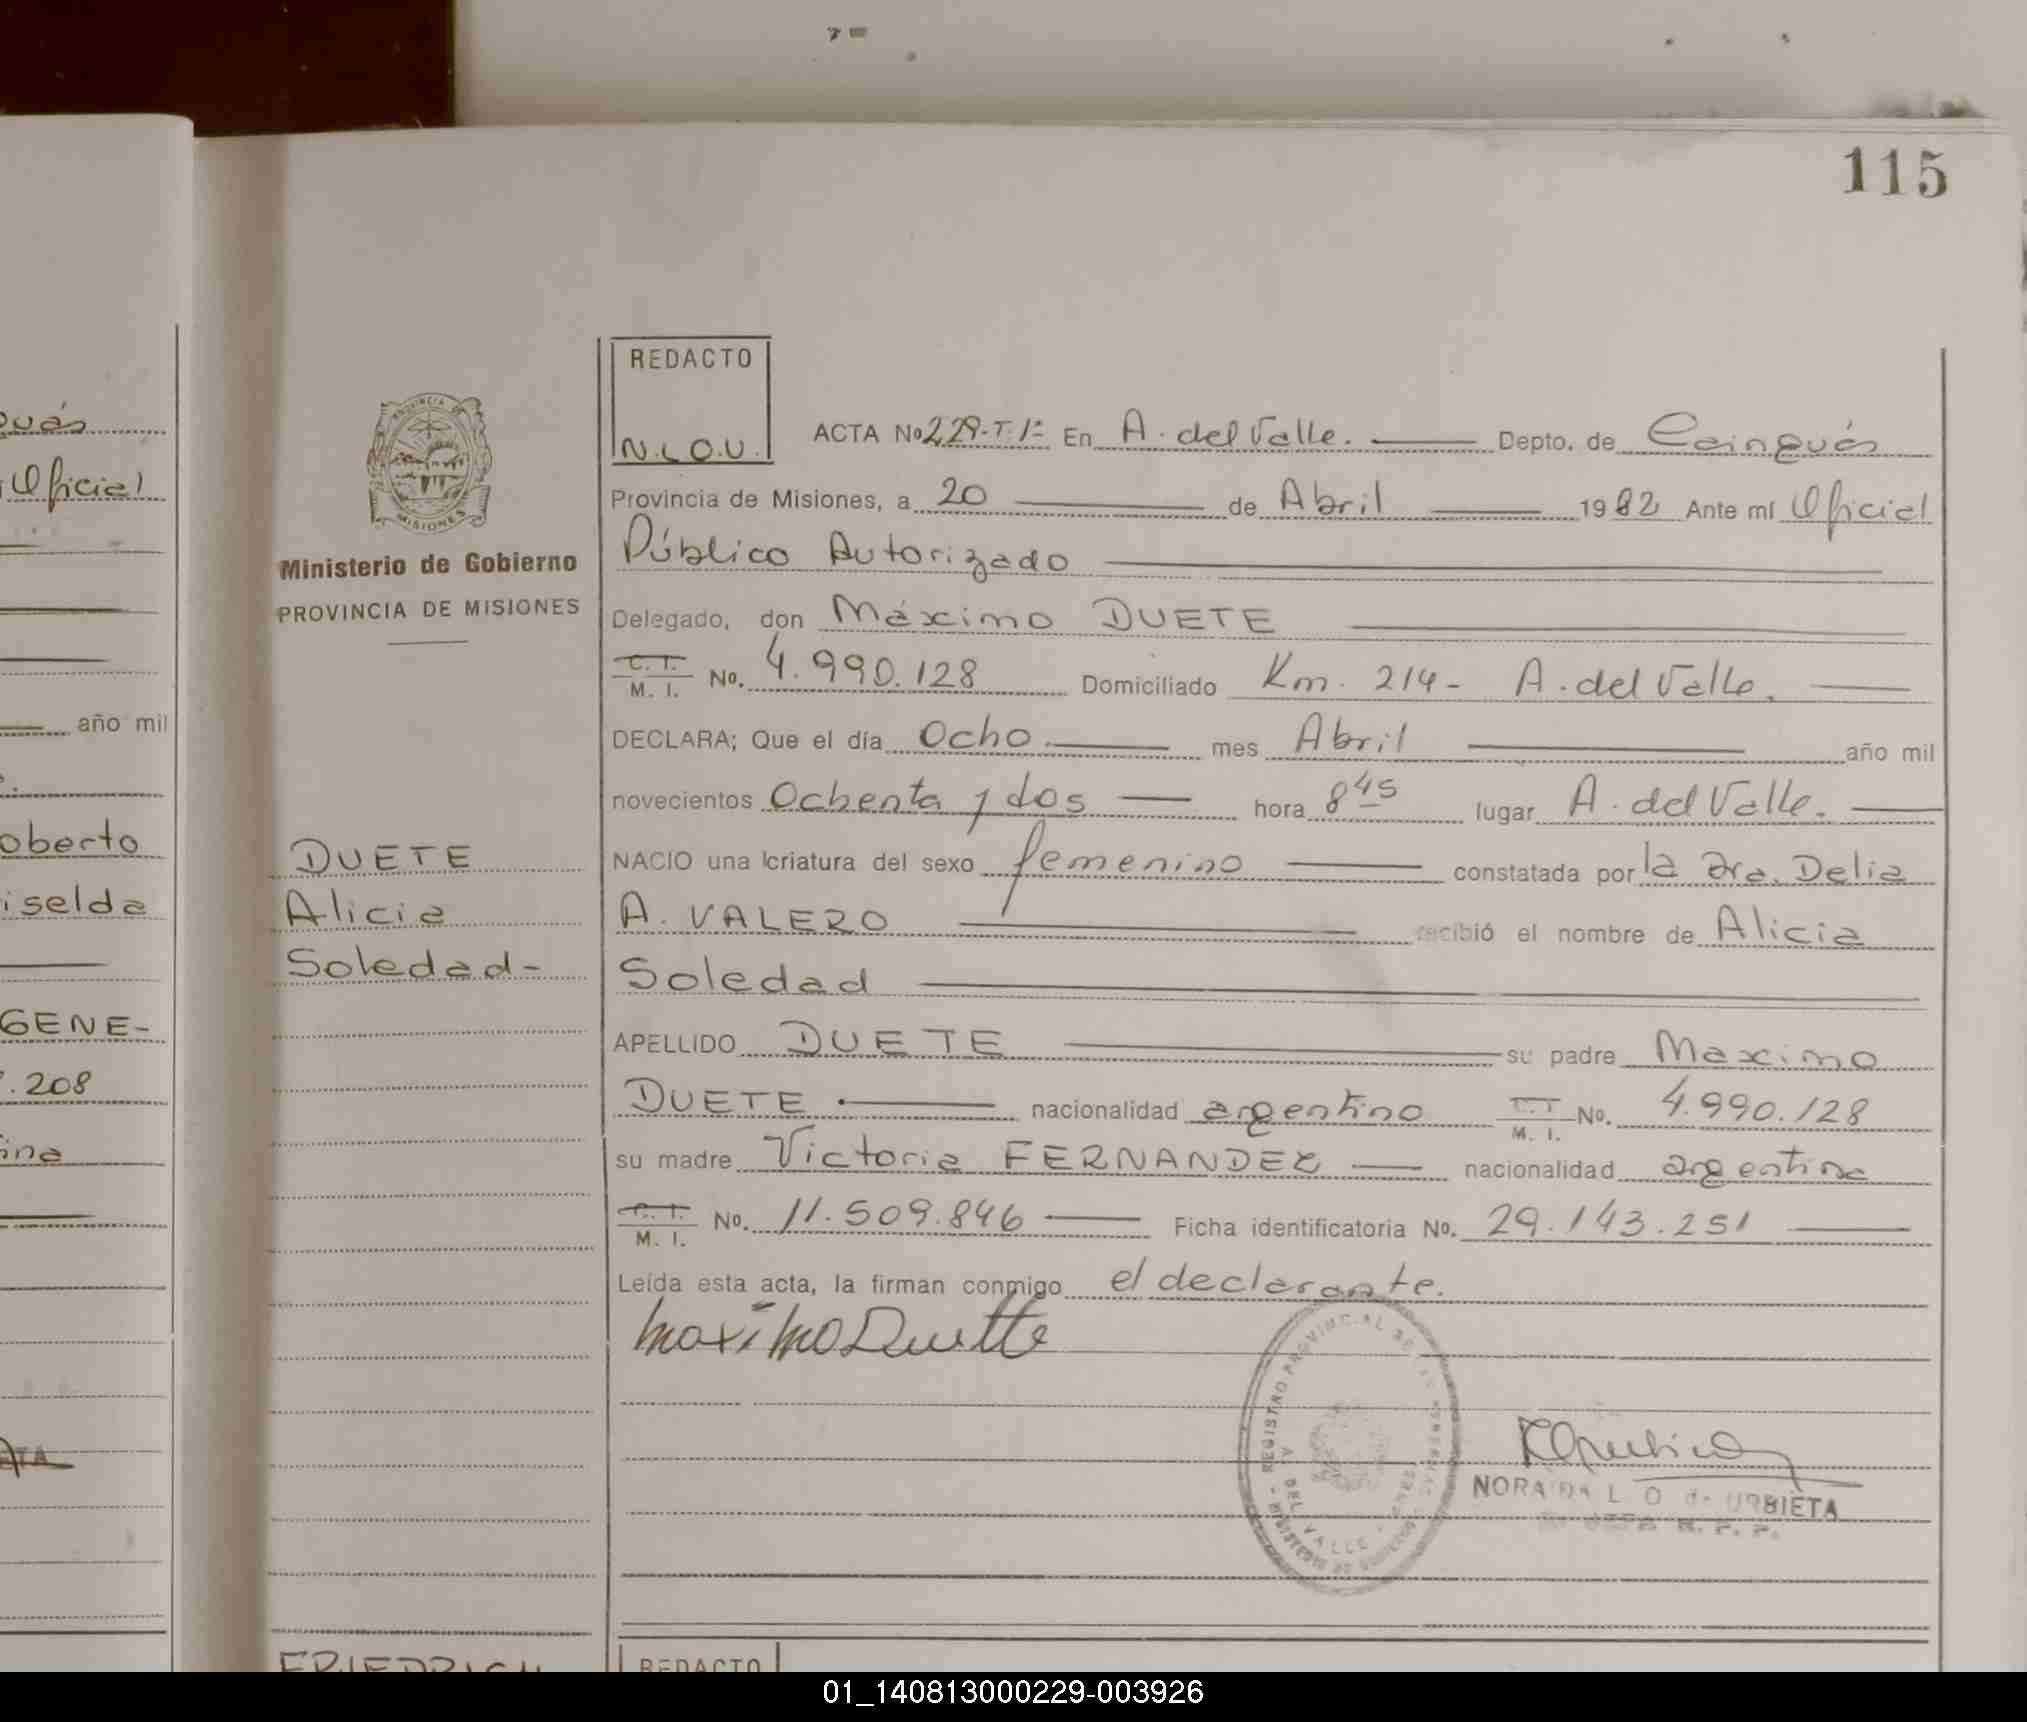 115
REDACTO
N.L.O.U.
PROVINCIA DE
MISIONES
Ministerio de Gobierno
PROVINCIA DE MISIONES
ACTA No 229-T.1º En A. del Valle. Depto. de Cainguás
Provincia de Misiones, a 20 de Abril 1982 Ante mí Oficial
Público Autorizado
Delegado, don Máximo DUETE
C. I. M. I. No. 4.990.128 Domiciliado Km. 214- A. del Valle.
DECLARA; Que el día Ocho mes Abril año mil
novecientos Ochenta y dos hora 8 45 lugar A. del Valle.
NACIO una criatura del sexo femenino constatada por la Dra. Delia
A. VALERO recibió el nombre de Alicia
Soledad
APELLIDO DUETE su padre Maximo
DUETE nacionalidad argentino C. I. M. I. No. 4.990.128
su madre Victoria FERNANDEZ nacionalidad argentina
C. I. M. I. No. 11.509.846 Ficha identificatoria No. 29.143.251
Leída esta acta, la firman conmigo el declarante.
Maximo Duette
REGISTRO PROVINCIAL DE
A. DEL VALLE
NORA L O de URBIETA
DUETE
Alicia
Soledad-
FRIEDRICH
REDACTO
guás
Oficial
año mil
oberto
iselda
GENE-
.208
ina
ETA
01_140813000229-003926